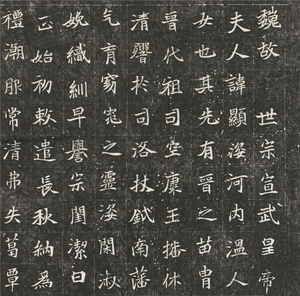 魏故 世宗宣武皇帝
夫人諱顯姿河內溫人
女也其先有晉之苗冑
晉代祖司空康王播休
清譽於司洛杖鉞南藩
气育窈窕之靈姿閑淑
婉織紃早譽宗閨潔白
正始初敕遣長秋納為
禮潮服常清弗失葛覃